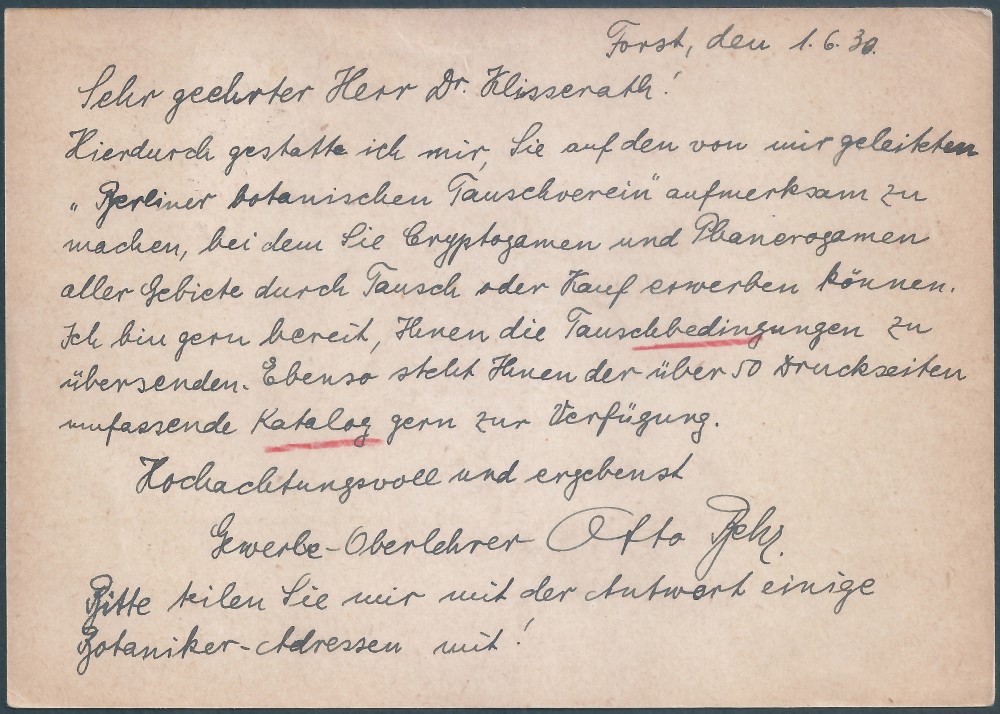 Forst, den 1.6.30.
Sehr geehrter Herr Dr. Klisserath!
Hierdurch gestatte ich mir, Sie auf den von mir geleiteten
"Berliner botanischen Tauschverein" aufmerksam zu
machen, bei dem Sie Cryptogamen und Phanerogamen
aller Gebiete durch Tausch oder Kauf erwerben können.
Ich bin gern bereit, Ihnen die Tauschbedingungen zu
übersenden. Ebenso steht Ihnen der über 50 Druckseiten
umfassende Katalog gern zur Verfügung.
Hochachtungsvoll und ergebenst
Gewerbe-Oberlehrer Otto Behr.
Bitte teilen Sie mir mit der Antwort einige
Botaniker-Adressen mit!